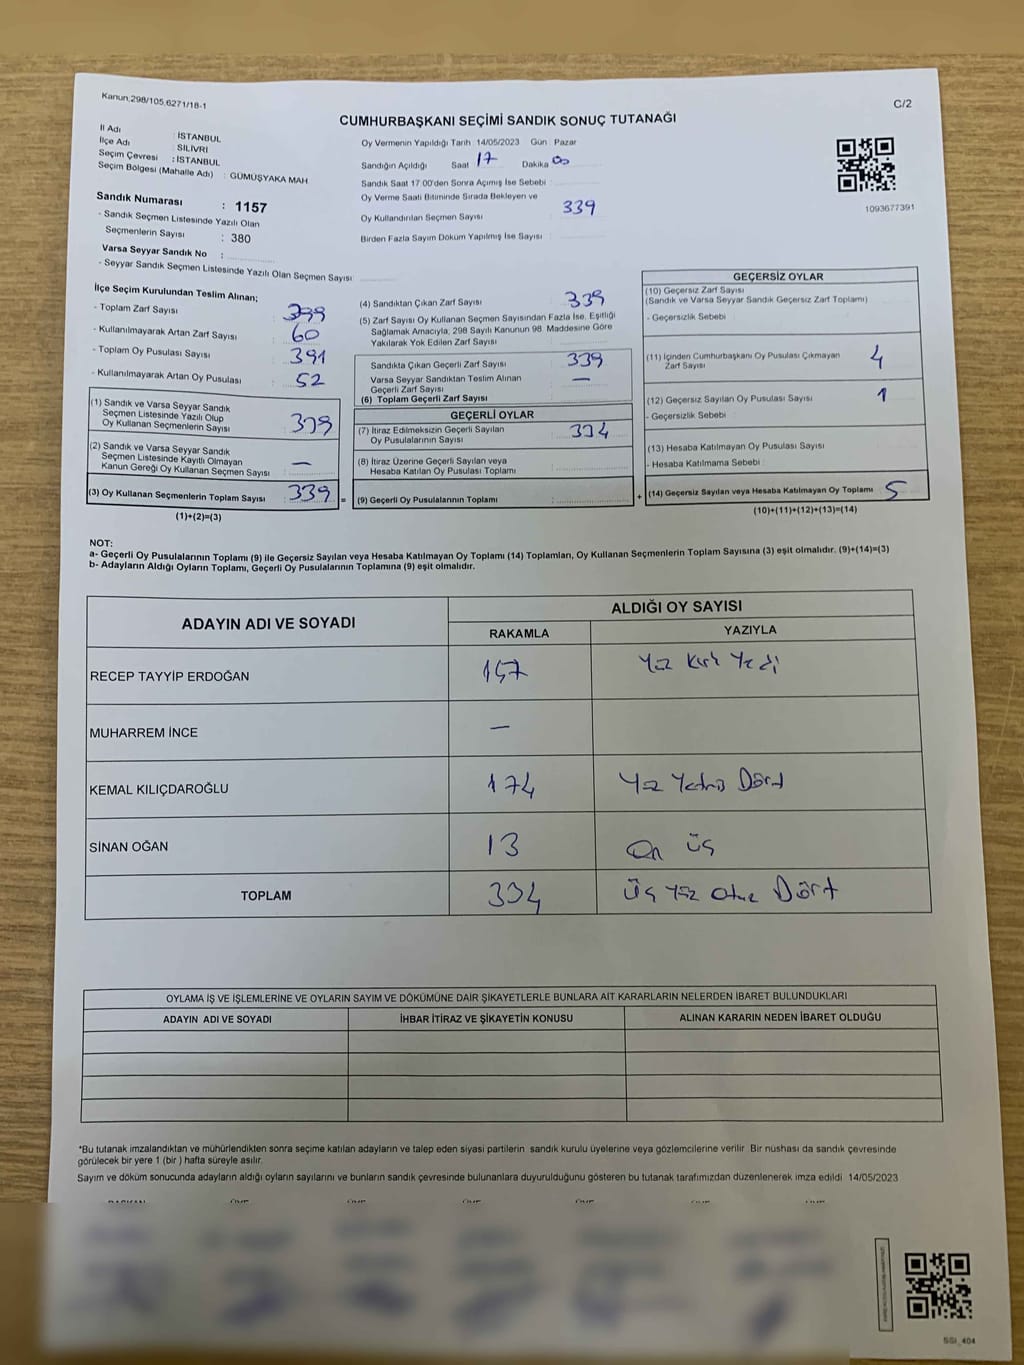 Kanun:298/105,6271/18-1
C/2
CUMHURBAŞKANI SEÇİMİ SANDIK SONUÇ TUTANAĞI
İl Adı : İSTANBUL
İlçe Adı : SİLİVRİ
Seçim Çevresi : İSTANBUL
Seçim Bölgesi (Mahalle Adı) : GÜMÜŞYAKA MAH
Sandık Numarası : 1157
- Sandık Seçmen Listesinde Yazılı Olan
Seçmenlerin Sayısı : 380
Varsa Seyyar Sandık No :
- Seyyar Sandık Seçmen Listesinde Yazılı Olan Seçmen Sayısı
Oy Vermenin Yapıldığı Tarih 14/05/2023 Gün Pazar
Sandığın Açıldığı Saat 17 Dakika 00
Sandık Saat 17:00'den Sonra Açımış İse Sebebi
Oy Verme Saati Bitiminde Sırada Bekleyen ve
Oy Kullandırılan Seçmen Sayısı 339
Birden Fazla Sayım Döküm Yapılmış İse Sayısı
1093677391
İlçe Seçim Kurulundan Teslim Alınan;
- Toplam Zarf Sayısı
- Kullanılmayarak Artan Zarf Sayısı : 60
- Toplam Oy Pusulası Sayısı : 391
- Kullanılmayarak Artan Oy Pusulası : 52
(1) Sandık ve Varsa Seyyar Sandık
Seçmen Listesinde Yazılı Olup
Oy Kullanan Seçmenlerin Sayısı : 339
(2) Sandık ve Varsa Seyyar Sandık
Seçmen Listesinde Kayıtlı Olmayan
Kanun Gereği Oy Kullanan Seçmen Sayısı : —
(3) Oy Kullanan Seçmenlerin Toplam Sayısı : 339 =
(1)+(2)=(3)
(4) Sandıktan Çıkan Zarf Sayısı : 339
(5) Zarf Sayısı Oy Kullanan Seçmen Sayısından Fazla İse, Eşitliği
Sağlamak Amacıyla, 298 Sayılı Kanunun 98. Maddesine Göre
Yakılarak Yok Edilen Zarf Sayısı
Sandıkta Çıkan Geçerli Zarf Sayısı : 339
Varsa Seyyar Sandıktan Teslim Alınan
Geçerli Zarf Sayısı : —
(6) Toplam Geçerli Zarf Sayısı
GEÇERLİ OYLAR
(7) İtiraz Edilmeksizin Geçerli Sayılan
Oy Pusulalarının Sayısı : 334
(8) İtiraz Üzerine Geçerli Sayılan veya
Hesaba Katılan Oy Pusulası Toplamı :
(9) Geçerli Oy Pusulalarının Toplamı : +
GEÇERSİZ OYLAR
(10) Geçersiz Zarf Sayısı
(Sandık ve Varsa Seyyar Sandık Geçersiz Zarf Toplamı)
- Geçersizlik Sebebi
(11) İçinden Cumhurbaşkanı Oy Pusulası Çıkmayan
Zarf Sayısı 4
(12) Geçersiz Sayılan Oy Pusulası Sayısı 1
- Geçersizlik Sebebi
(13) Hesaba Katılmayan Oy Pusulası Sayısı
- Hesaba Katılmama Sebebi
(14) Geçersiz Sayılan veya Hesaba Katılmayan Oy Toplamı 5
(10)+(11)+(12)+(13)=(14)
NOT:
a- Geçerli Oy Pusulalarının Toplamı (9) ile Geçersiz Sayılan veya Hesaba Katılmayan Oy Toplamı (14) Toplamları, Oy Kullanan Seçmenlerin Toplam Sayısına (3) eşit olmalıdır. (9)+(14)=(3)
b- Adayların Aldığı Oyların Toplamı, Geçerli Oy Pusulalarının Toplamına (9) eşit olmalıdır.
ADAYIN ADI VE SOYADI ALDIĞI OY SAYISI
RAKAMLA YAZIYLA
RECEP TAYYİP ERDOĞAN 147 Yüz Kırk Yedi
MUHARREM İNCE —
KEMAL KILIÇDAROĞLU 174 Yüz Yetmiş Dört
SİNAN OĞAN 13 On üç
TOPLAM 334 Üç Yüz Otuz Dört
OYLAMA İŞ VE İŞLEMLERİNE VE OYLARIN SAYIM VE DÖKÜMÜNE DAİR ŞİKAYETLERLE BUNLARA AİT KARARLARIN NELERDEN İBARET BULUNDUKLARI
ADAYIN ADI VE SOYADI İHBAR İTİRAZ VE ŞİKAYETİN KONUSU ALINAN KARARIN NEDEN İBARET OLDUĞU
*Bu tutanak imzalandıktan ve mühürlendikten sonra seçime katılan adayların ve talep eden siyasi partilerin sandık kurulu üyelerine veya gözlemcilerine verilir Bir nüshası da sandık çevresinde
görülecek bir yere 1 (bir ) hafta süreyle asılır.
Sayım ve döküm sonucunda adayların aldığı oyların sayılarını ve bunların sandık çevresinde bulunanlara duyurulduğunu gösteren bu tutanak tarafımızdan düzenlenerek imza edildi 14/05/2023
SGI_404